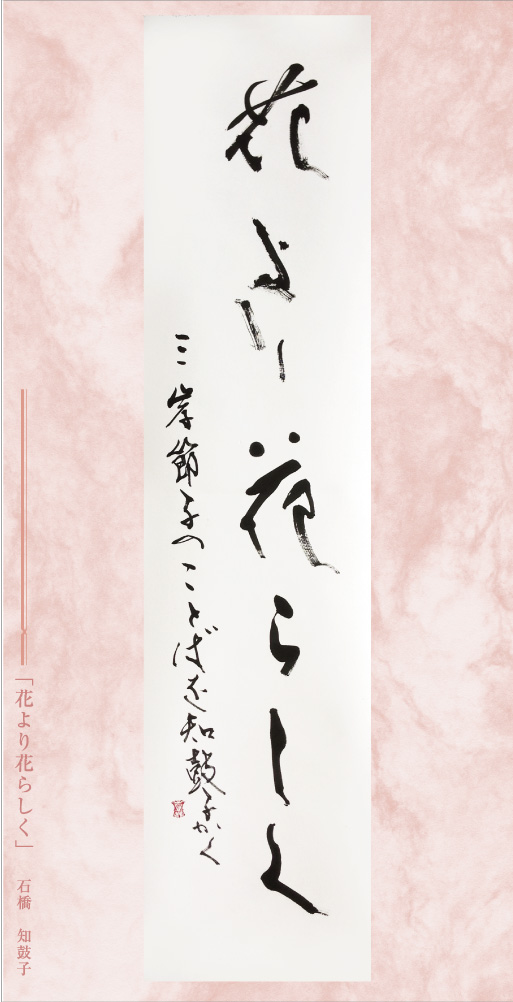 花より花らしく
三岸節子のことばを知鼓子かく
「花より花らしく」 石橋 知鼓子